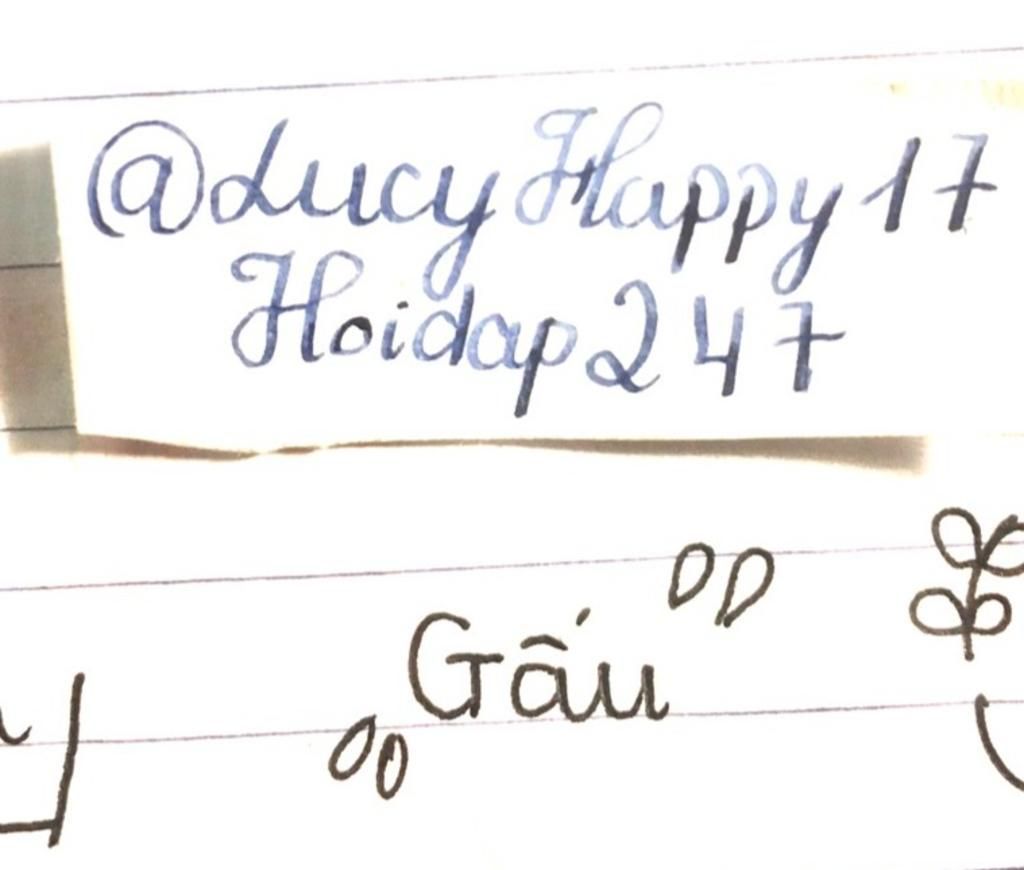 @LucyHappy17
Hoidap247
Gấu